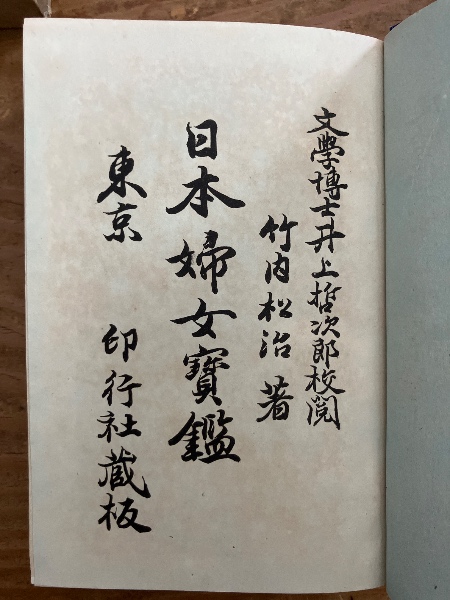 文學博士井上哲次郎校閲
竹内松治 著
日本婦女寳鑑
東京 印行社蔵板